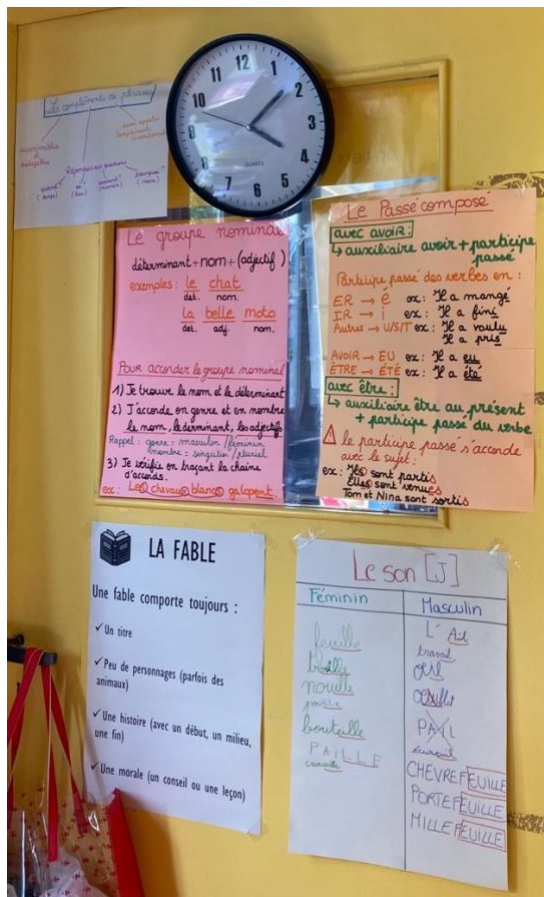 Les compléments de phrases
supprimables
et
déplaçables
Répondent aux questions
quand ?
(temps)
où ?
(lieu)
comment ?
(manière)
pourquoi ?
(cause)
11 12 1
10 2
9 3
8 4
7 6 5
QUARTZ
Le groupe nominal
déterminant + nom + (adjectif)
exemples : le chat
det. nom.
la belle moto
det. adj. nom.
Pour accorder le groupe nominal
1) Je trouve le nom et le déterminant
2) J'accorde en genre et en nombre
le nom, le derminant, les adjectifs
Rappel : genre = masculin / féminin
nombre = singulier / pluriel
3) Je vérifie en traçant la chaîne
d'accords.
ex : Les chevaux blancs galopent.
Le Passé composé
avec avoir :
↳ auxiliaire avoir + participe
passé
Participe passé des verbes en :
ER → é ex : Il a mangé
IR → i ex : Il a fini
Autres → U/S/T ex : Il a voulu
Il a pris
AVOIR → EU ex : Il a eu
ÊTRE → ÉTÉ ex : Il a été
avec être :
↳ auxiliaire être au présent
+ participe passé du verbe
⚠ le participe passé s'accorde
avec le sujet :
ex : Ils sont partis
Elles sont venues
Tom et Nina sont sortis
LA FABLE
Une fable comporte toujours :
✓ Un titre
✓ Peu de personnages (parfois des
animaux)
✓ Une histoire (avec un début, un milieu,
une fin)
✓ Une morale (un conseil ou une leçon)
Le son [J]
Féminin
feuille
nouille
bouteille
PAILLE
Masculin
L' Ail
travail
œil
PAIL
écureuil
CHEVREFEUILLE
PORTEFEUILLE
MILLEFEUILLE